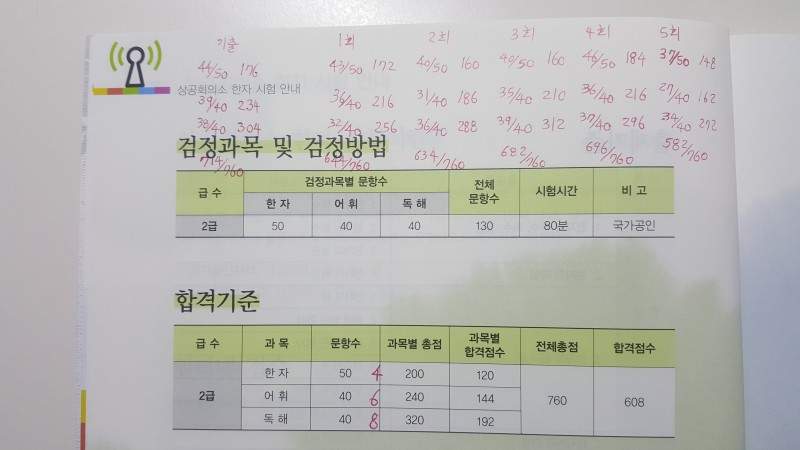 기출 1회 2회 3회 4회 5회
44/50 176 43/50 172 40/50 160 40/50 160 46/50 184 37/50 148
상공회의소 한자 시험 안내
39/40 234 36/40 216 31/40 186 35/40 210 36/40 216 27/40 162
38/40 304 32/40 256 36/40 288 39/40 312 37/40 296 34/40 272
검정과목 및 검정방법
714/760 644/760 634/760 682/760 696/760 582/760
급 수 검정과목별 문항수 전체 문항수 시험시간 비 고
한 자 어 휘 독 해
2급 50 40 40 130 80분 국가공인
합격기준
급 수 과 목 문항수 과목별 총점 과목별 합격점수 전체총점 합격점수
한 자 50 4 200 120
2급 어 휘 40 6 240 144 760 608
독 해 40 8 320 192